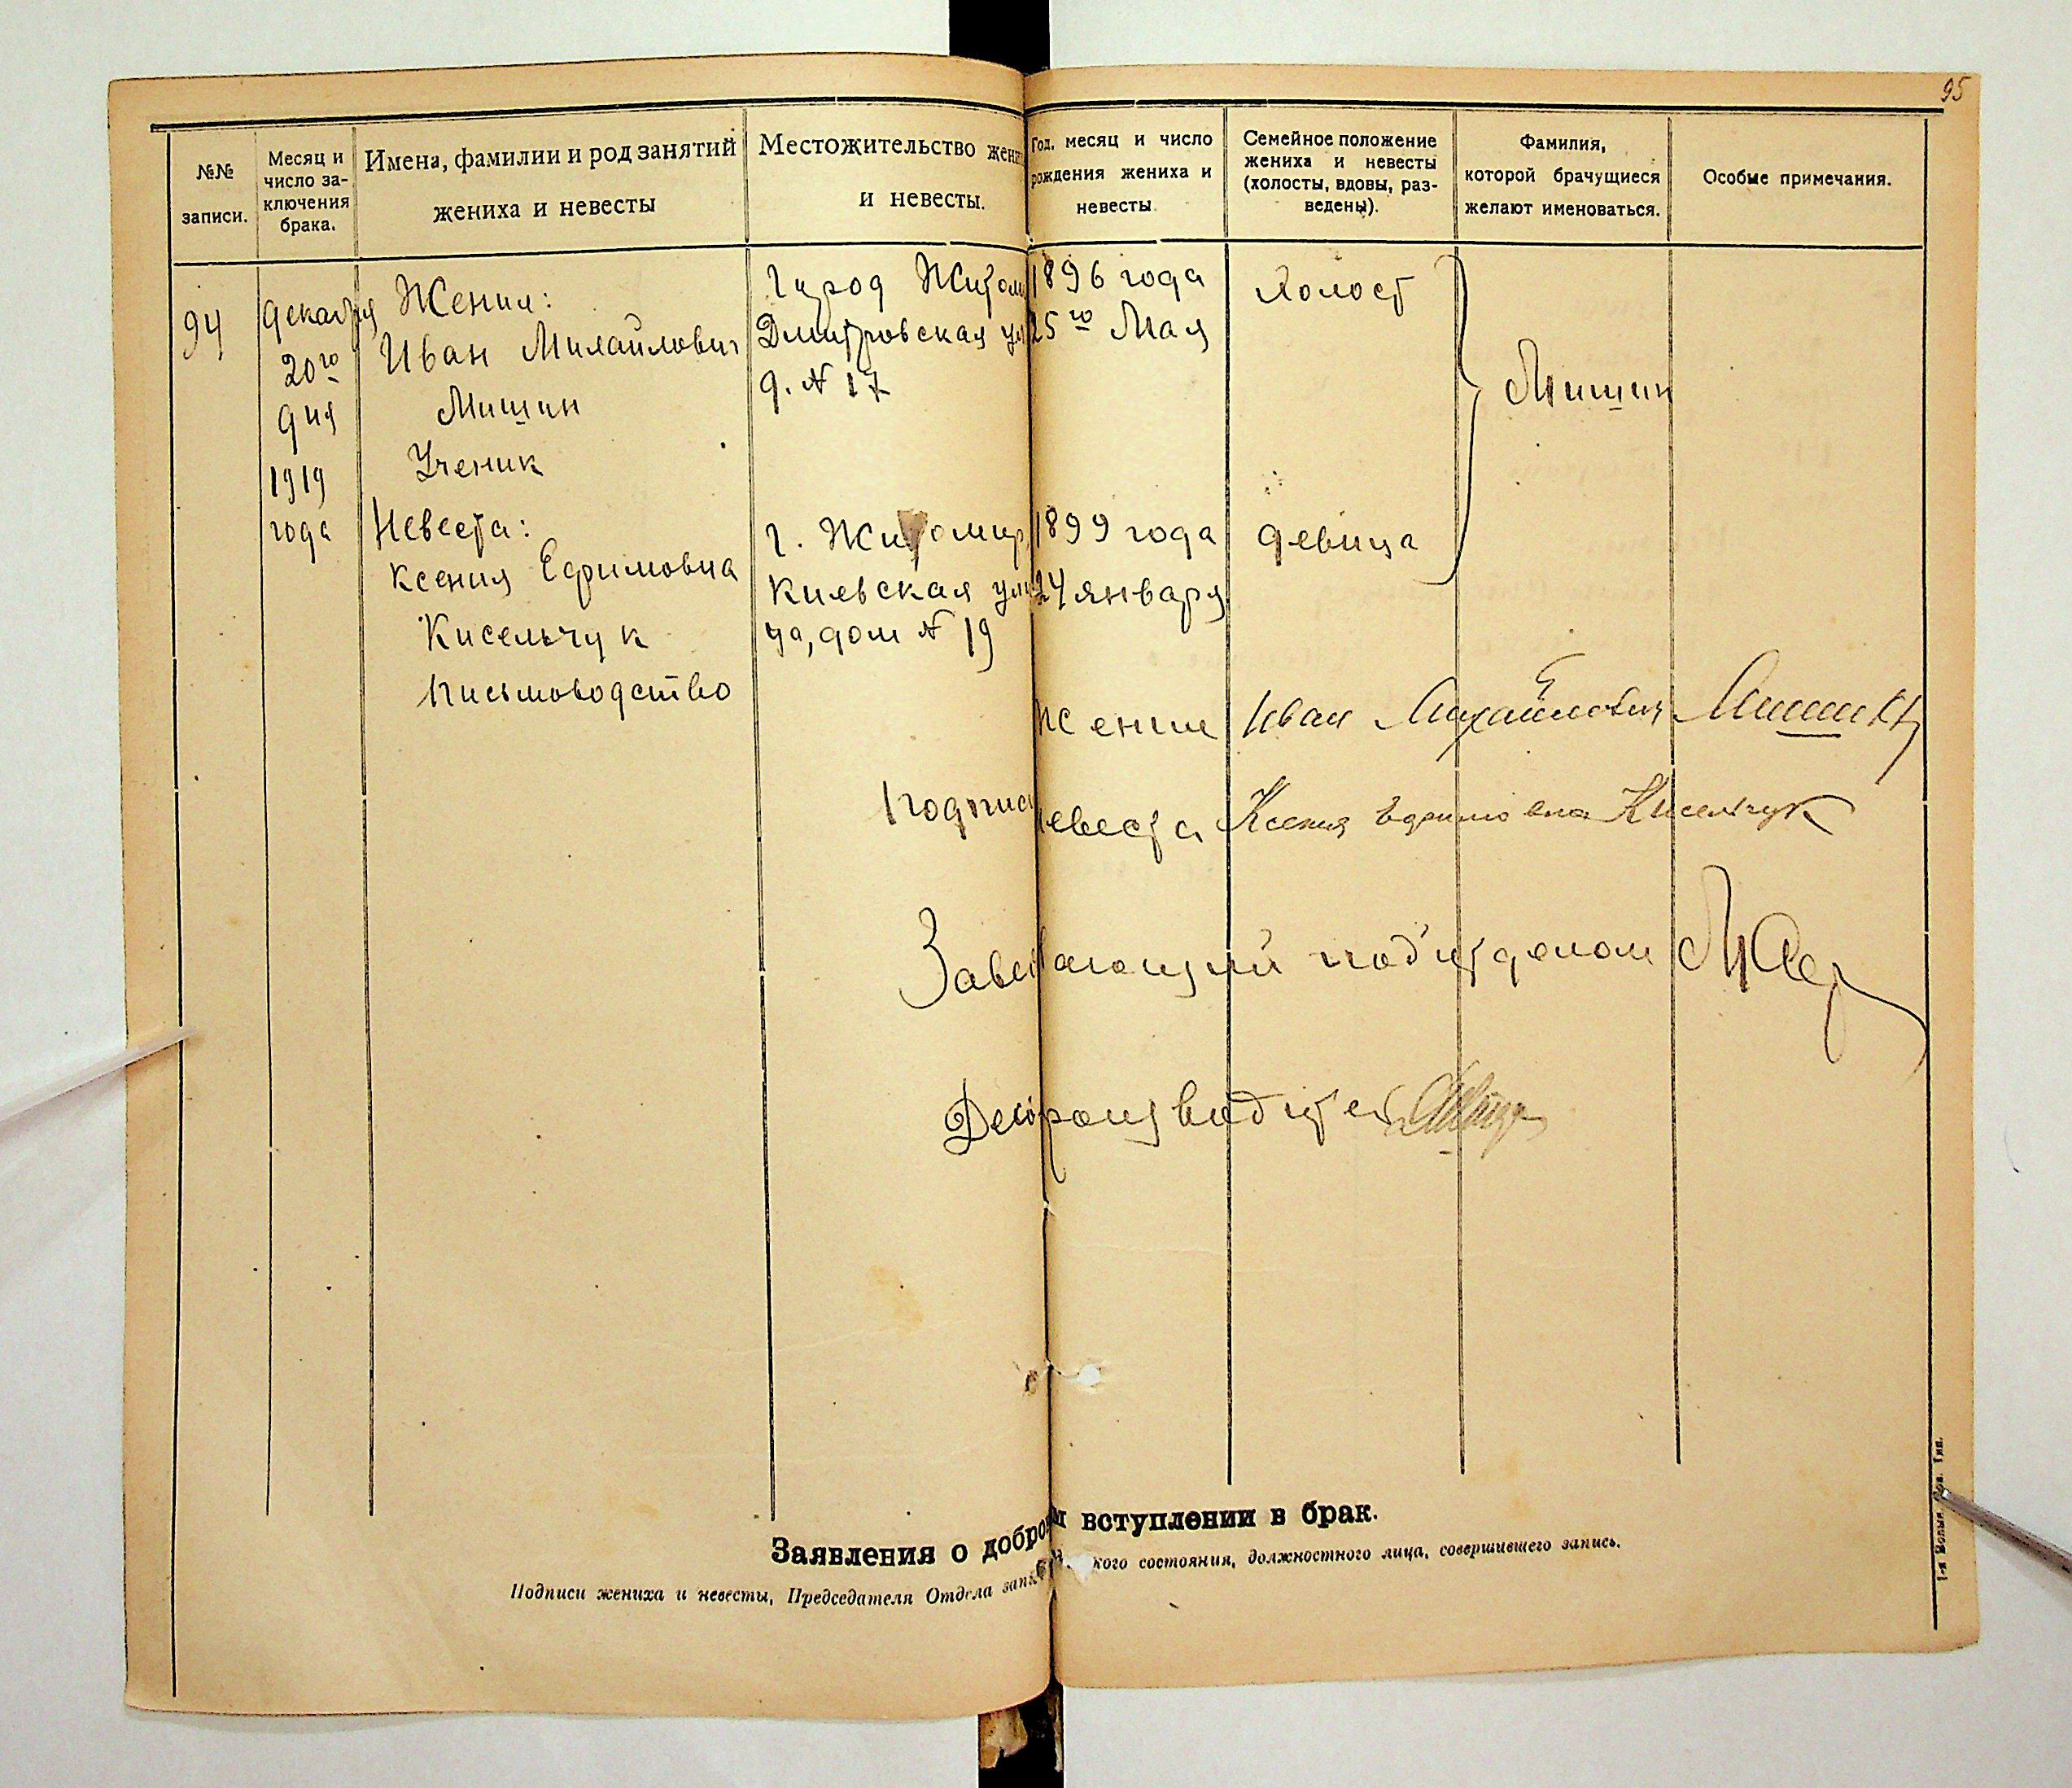 95
№№ записи.
Месяц и число за-
ключения брака.
Имена, фамилии и род занятий
жениха и невесты
Местожительство жени
и невесты.
Год, месяц и число
рождения жениха и
невесты
Семейное положение
жениха и невесты
(холосты, вдовы, раз-
ведены).
Фамилия,
которой брачущиеся
желают именоваться.
Особые примечания.
94
декабря
20го
дня
1919
года
Жених:
Иван Михайлович
Мишин
Ученик
Город Житом
Дмитровская ул
д. № 17
1896 года
25го Мая
Холост
Мишин
Невеста:
Ксения Ефимовна
Кисельчук
Письмоводство
г. Житомир,
Киевская ули
ца, дом № 19
1899 года
24 января
девица
Жених Иван Михайлович Мишин
Подписи
невеста Ксения Ефимовна Кисельчук
Заведывающий подотделом
Делопроизводитель
Заявления о добро вступлении в брак.
Подписи жениха и невесты, Председателя Отдела запи кого состояния, должностного лица, совершившего запись.
1-я Волын. Сов. Тип.